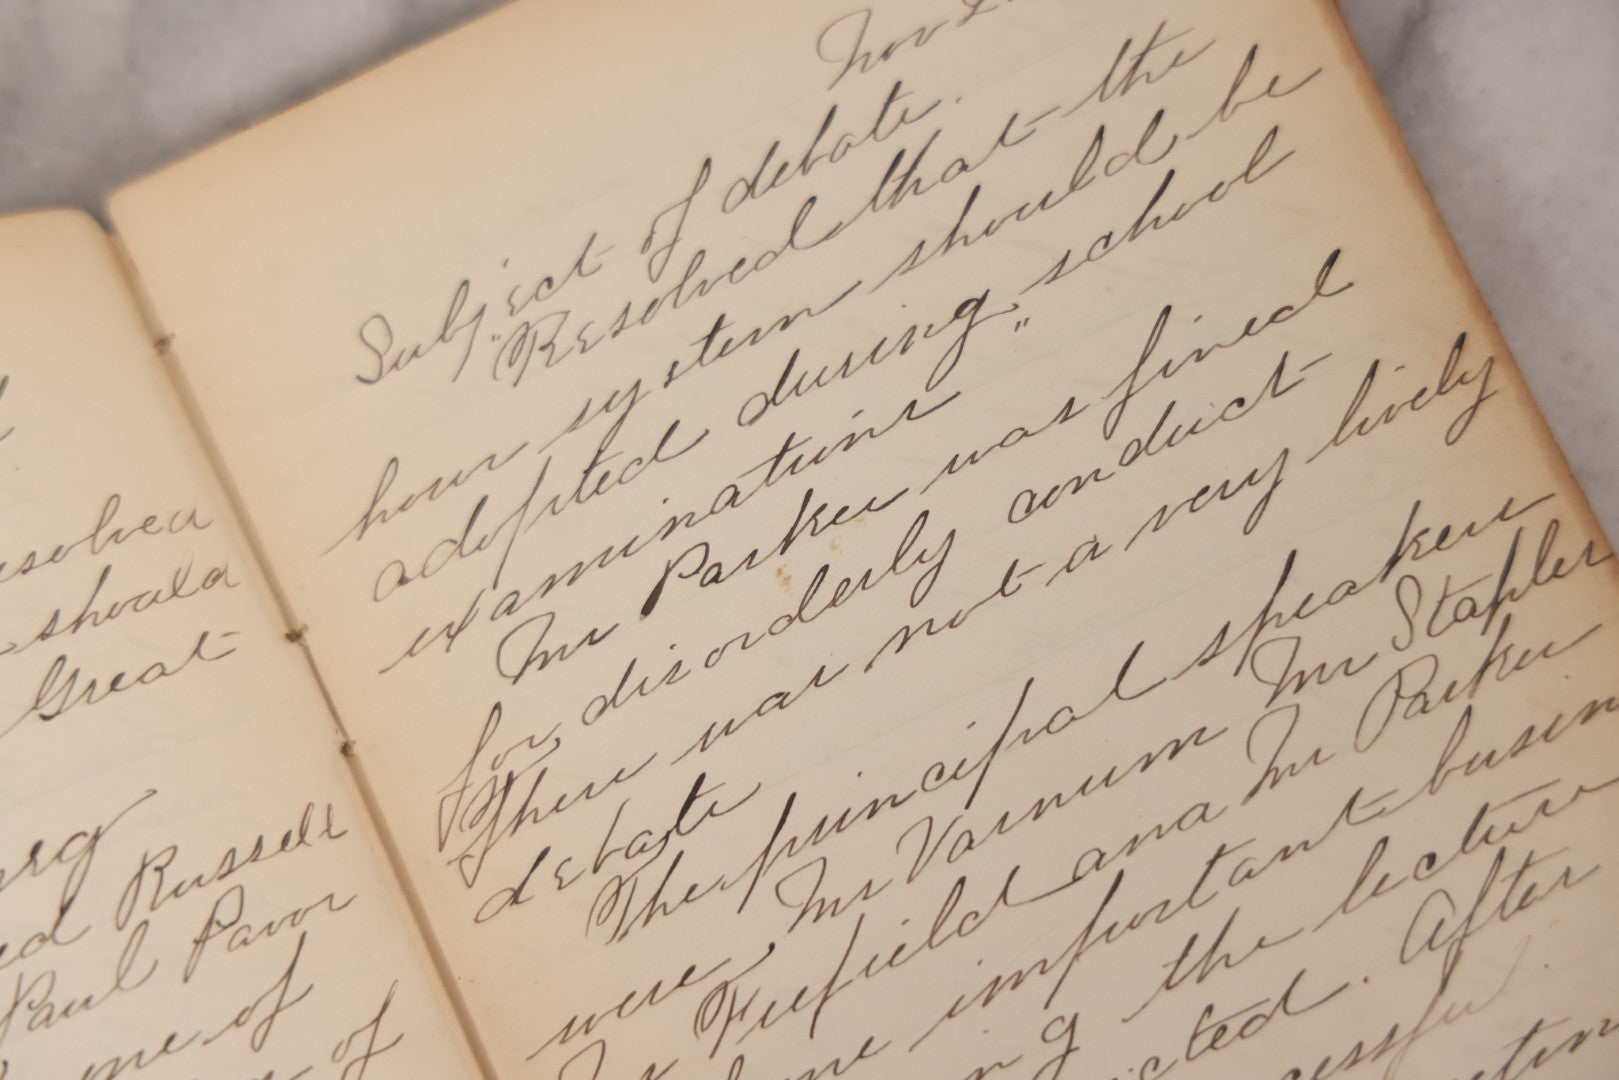 esolved
should
Great
ed Russell
Paul Pavor
one of
of
Nov
Subject of debate.
"Resolved that the
hour system should be
adopted during school
examinations"
Mr Parker was fined
for disorderly conduct
There was not a very lively
debate
The principal speakers
were, Mr Varnum Mr Stapler
Mr Fuefield and Mr Parker
important busin
the lecture
cted. After
cessful.